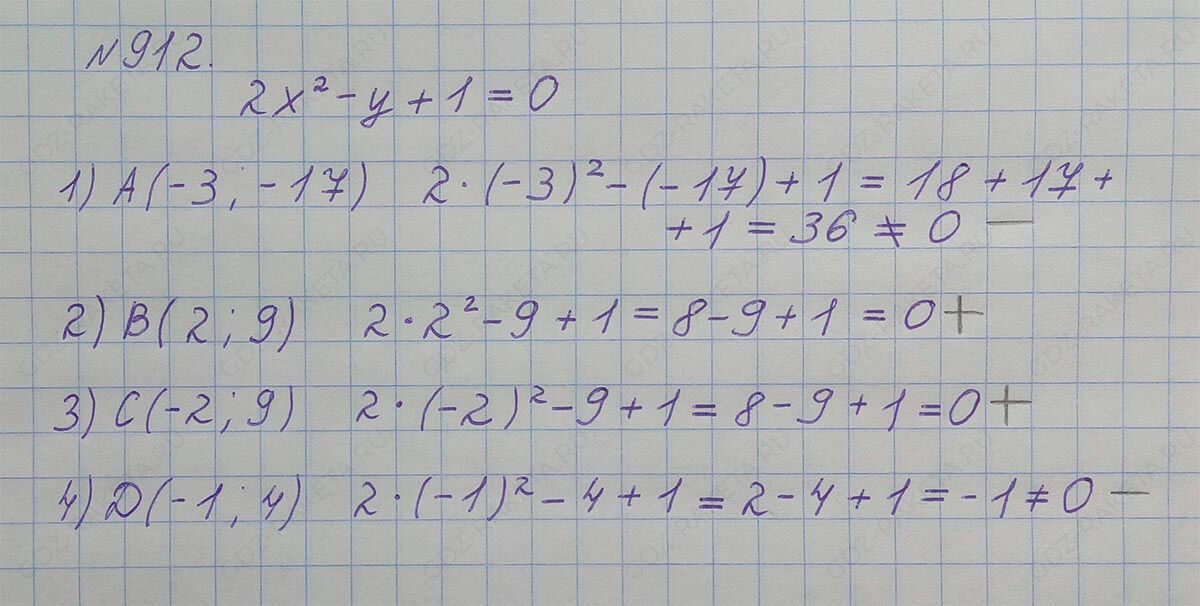 №912.
2x² - y + 1 = 0
1) A(-3; -17) 2·(-3)² - (-17) + 1 = 18 + 17 +
+ 1 = 36 ≠ 0 —
2) B(2; 9) 2·2² - 9 + 1 = 8 - 9 + 1 = 0 +
3) C(-2; 9) 2·(-2)² - 9 + 1 = 8 - 9 + 1 = 0 +
4) D(-1; 4) 2·(-1)² - 4 + 1 = 2 - 4 + 1 = -1 ≠ 0 —
GDZ-RAKETA.RU